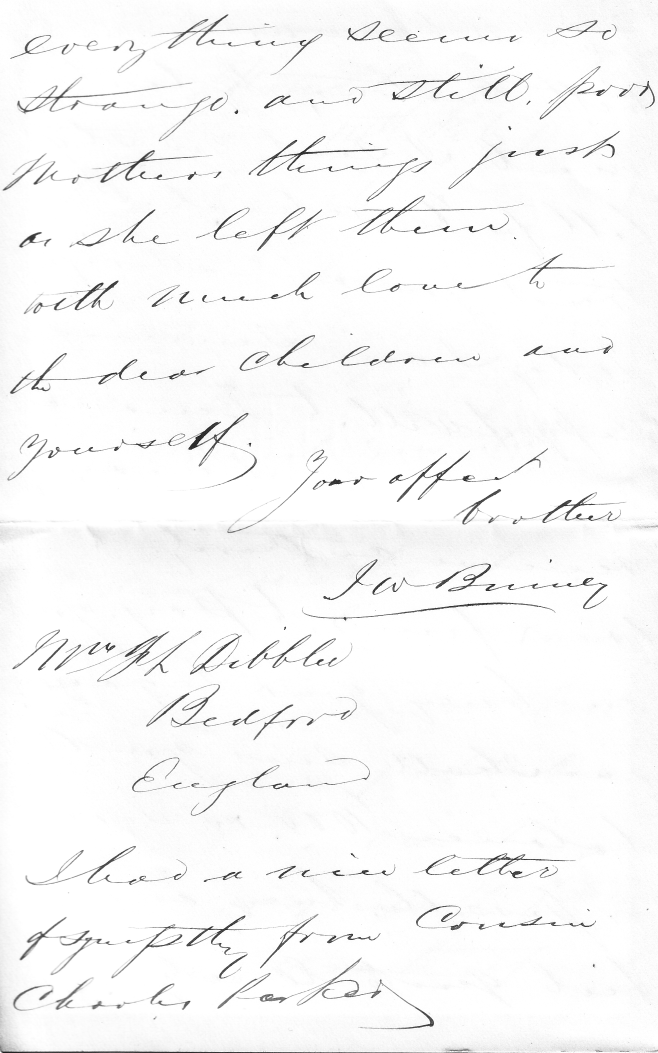 everything seems so
strange. and still, poor
Mothers things just
as she left them.
with much love to
the dear children and
yourself.
Your affect
brother
J W Binney
Mrs F L Dibblee
Bedford
England
I had a nice letter
of sympathy from Cousin
Charles Parker